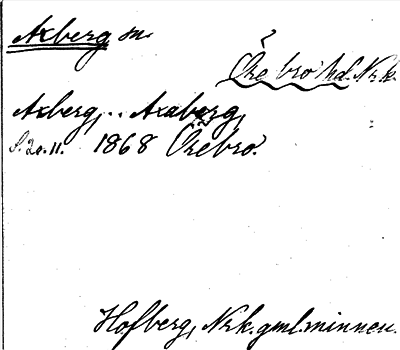 Axberg sn
Örebro hd. Nrk.
Axberg, .. Axaberg,
S. 20. 11. 1868 Örebro.
Hofberg, Nrk. gml. minnen.